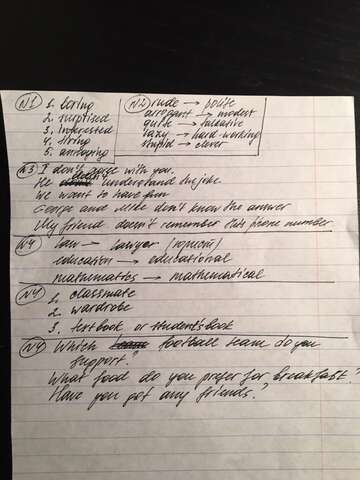 N1 1. boring
2. surprised
3. interested
4. tiring
5. annoying
N2 rude → polite
arrogant → modest
quite → talkative
lazy → hard-working
stupid → clever
N3 I don't agree with you.
He doesn't understand the joke.
We want to have fun
George and Mike don't know the answer
My friend doesn't remember this phone number
N4 law → lawyer (юрист)
education → educational
mathematics → mathematical
N4 1. classmate
2. wardrobe
3. textbook or student's book
N4 Which football team do you
support?
What food do you prefer for breakfast?
Have you got any friends?